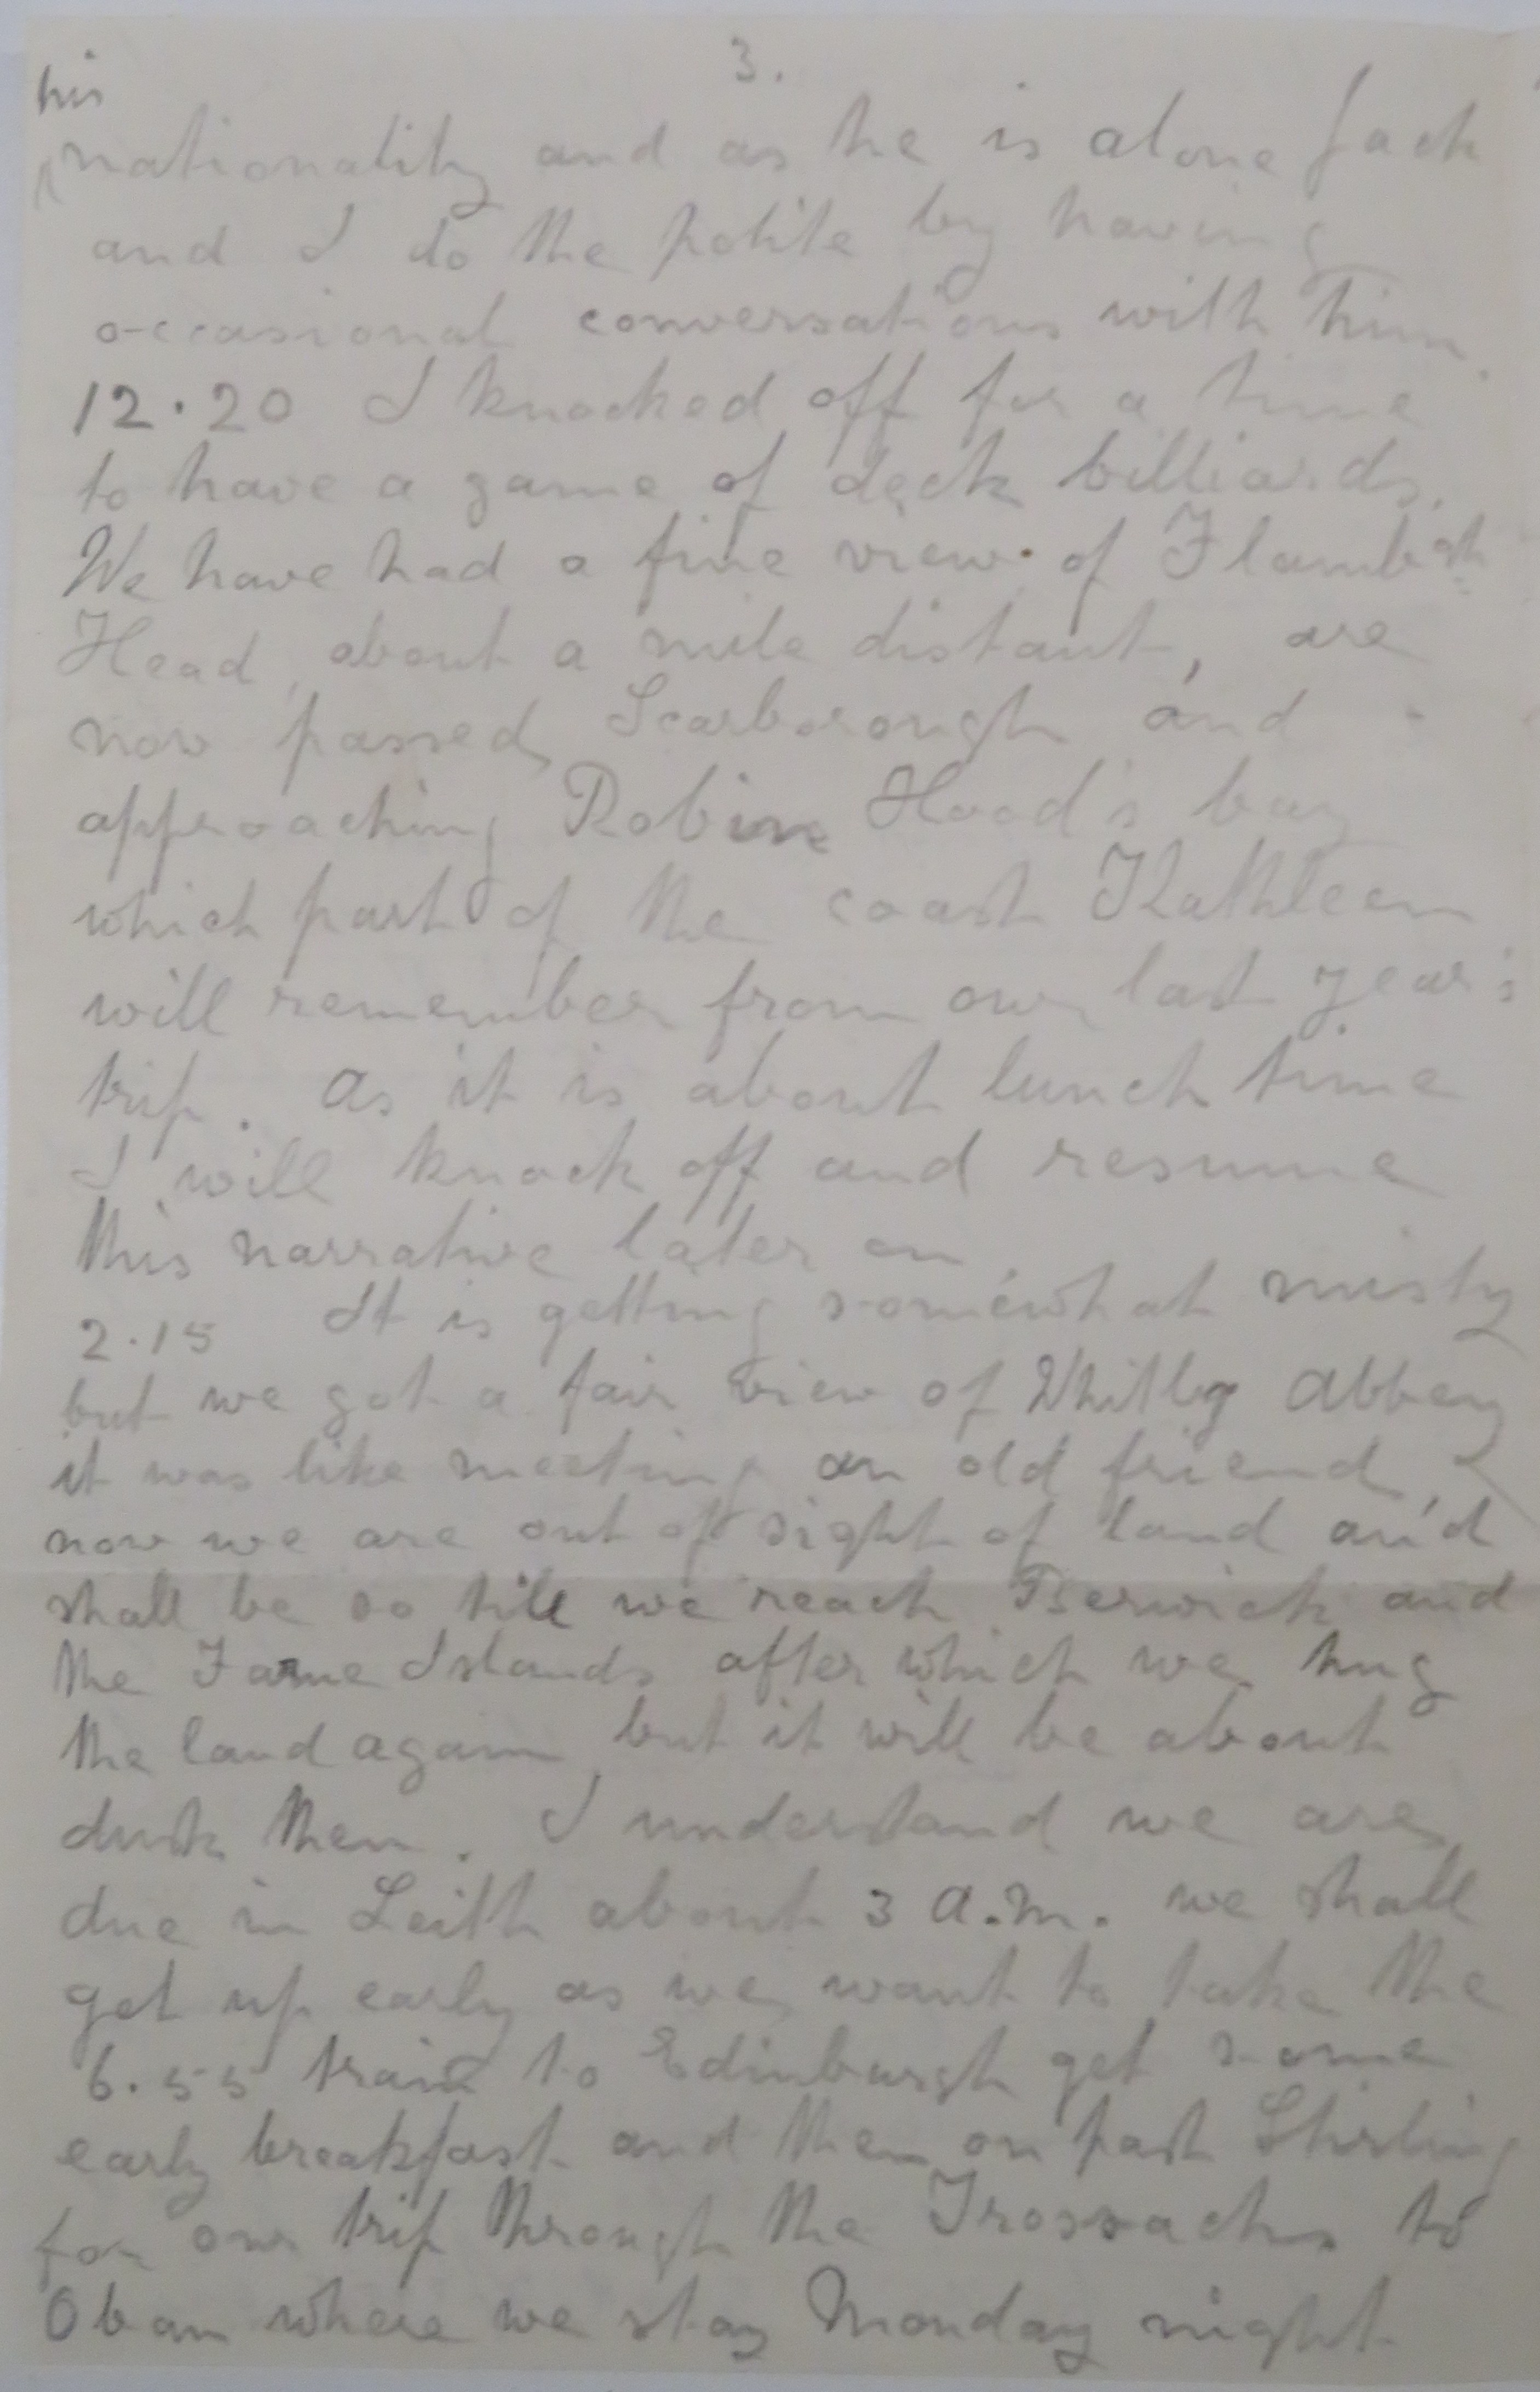 3.
his
nationality and as he is alone Jack
and I do the polite by having
occasional conversations with him.
12.20 I knocked off for a time
to have a game of deck billiards.
We have had a fine view of Flamboh
Head, about a mile distant, are
now passed Scarborough and
approaching Robin Hood's bay
which part of the coast Kathleen
will remember from our last year's
trip. As it is about lunch time
I will knock off and resume
this narrative later on.
2.15 It is getting somewhat misty
but we got a fair view of Whitby Abbey
it was like meeting an old friend,
now we are out of sight of land and
shall be so till we reach Berwick and
the Farne Islands after which we hug
the land again, but it will be about
dusk then. I understand we are
due in Leith about 3 a.m. we shall
get up early as we want to take the
6.55 train to Edinburgh get some
early breakfast and then on past Stirling
for our trip through the Trossachs to
Oban where we stay Monday night